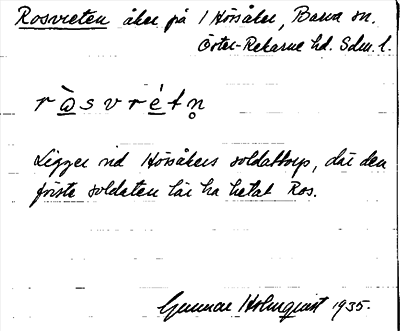 Rosvreten åker på 1 Hörsåker, Barva sn.
Öster-Rekarne hd. Sdm. l.
r ò̲ s v r é̲ t n̥
Ligger vid Hörsåkers soldattorp, där den
förste soldaten lär ha hetat Ros.
Gunnar Holmquist 1935.